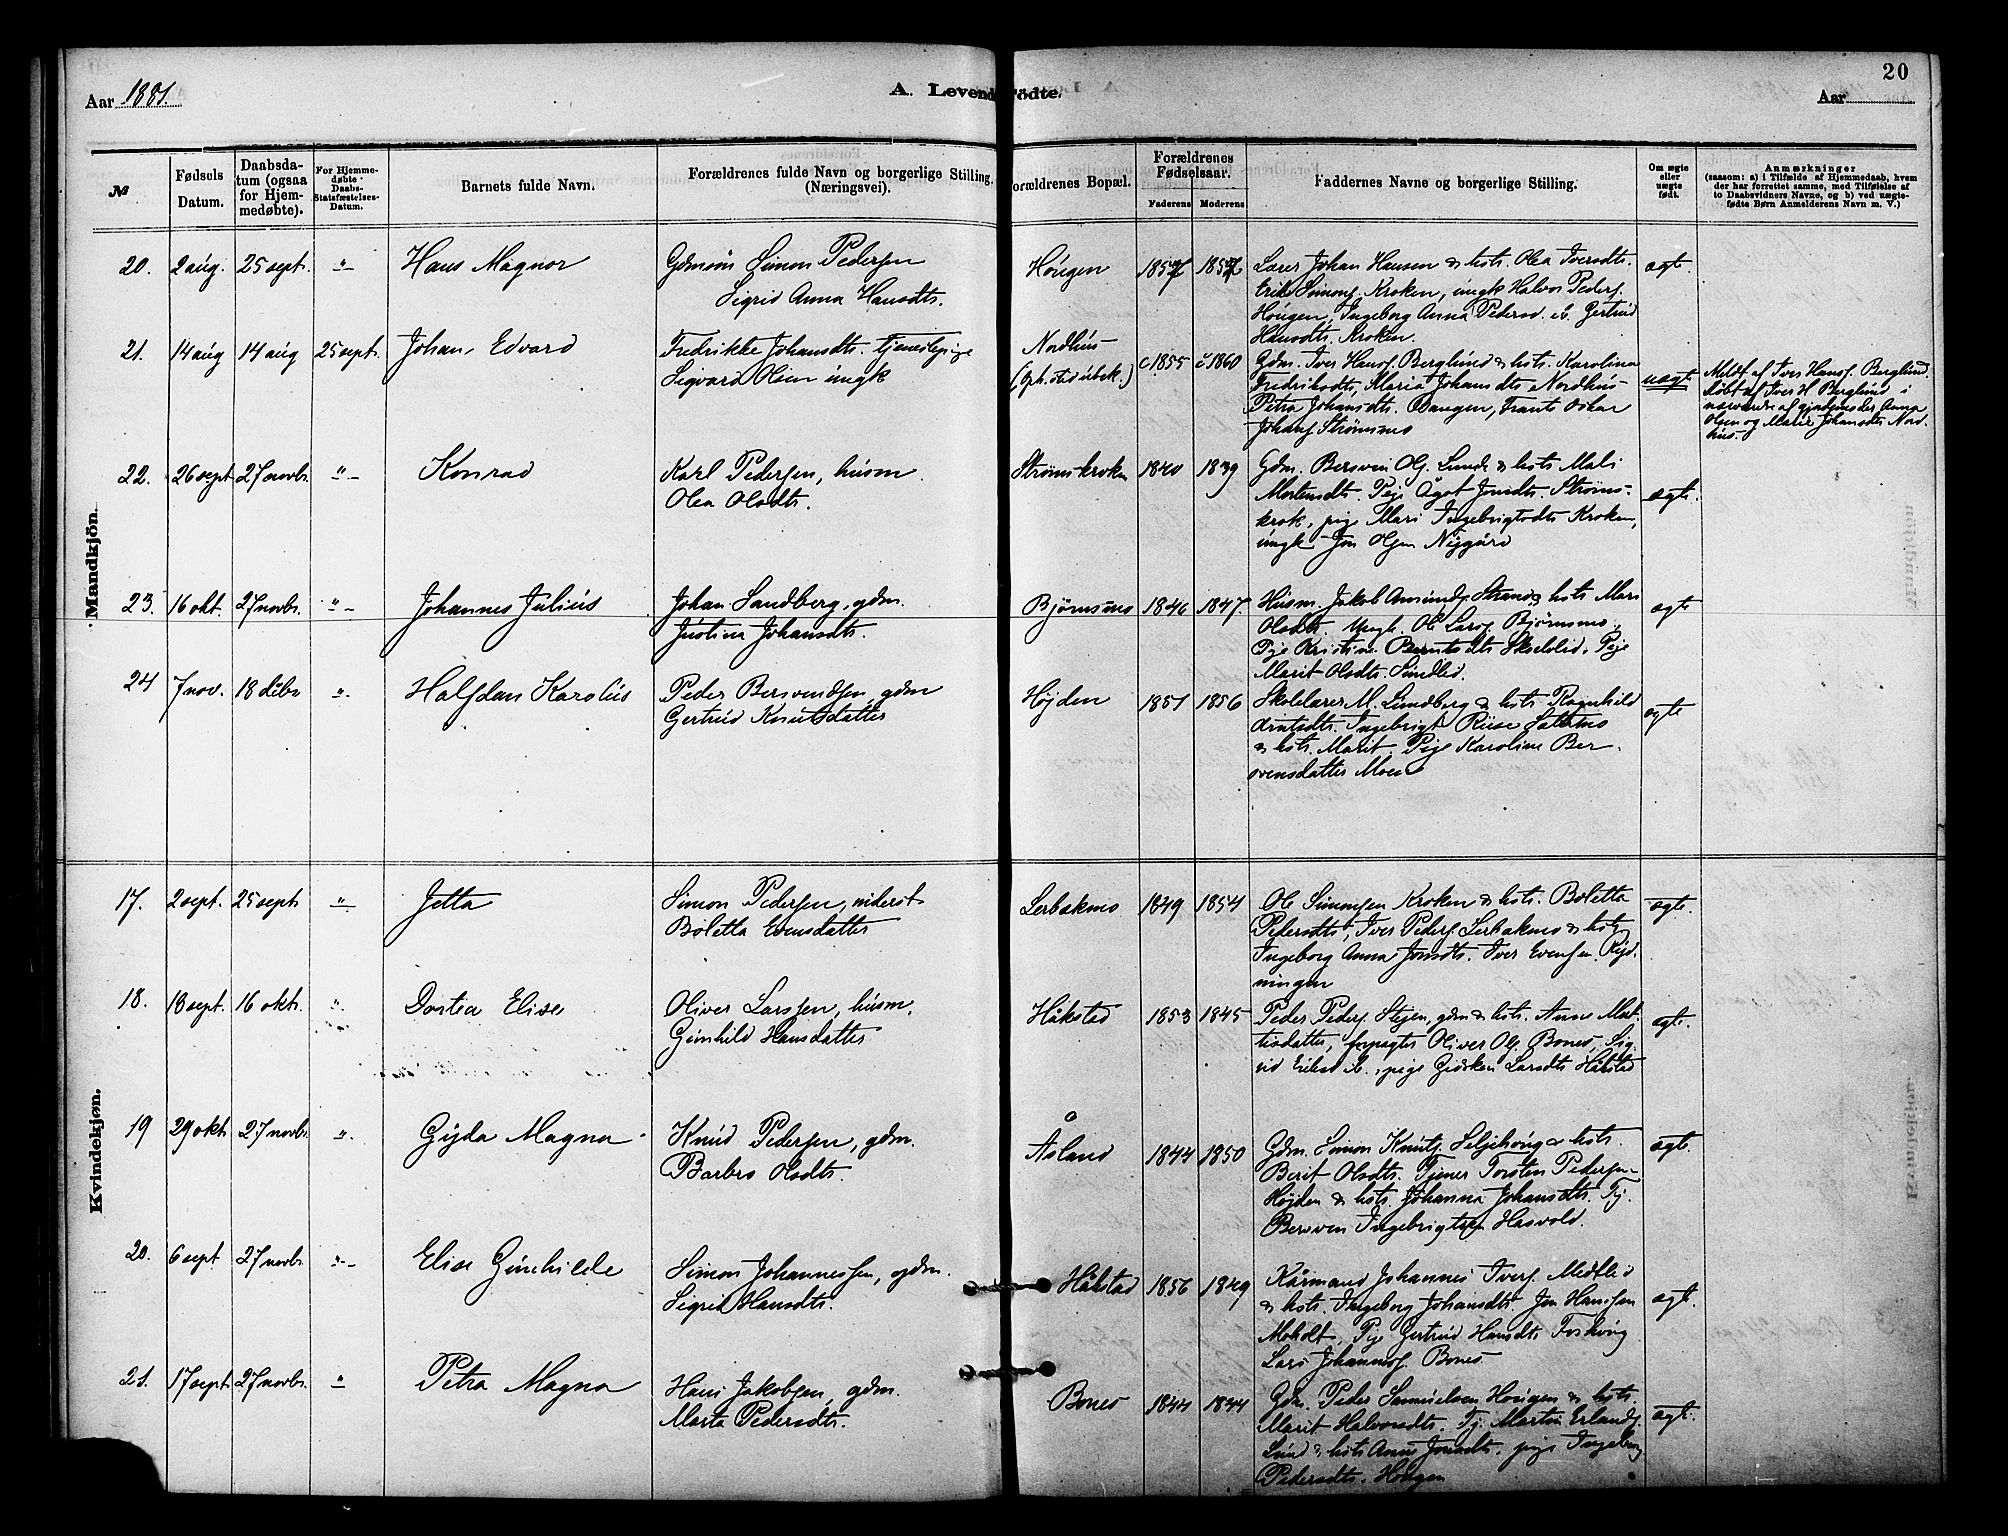 20
Aar 1881.
A. Levende Födte.
Aar
№
Fødsels Datum.
Daabsdatum (ogsaa for Hjemmedøbte).
For Hjemmedøbte Daabs-Statsfæstelses-Datum.
Barnets fulde Navn.
Forældrenes fulde Navn og borgerlige Stilling. (Næringsvei).
Forældrenes Bopæl.
Forældrenes Fødselsaar.
Faderens
Moderens
Faddernes Navne og borgerlige Stilling.
Om ægte eller uægte født.
Anmærkninger
(saasom: a) i Tilfælde af Hjemmedaab, hvem der har forrettet samme, med Tilføielse af to Daabsvidners Navne, og b) ved uægtefødte Børn Anmelderens Navn m. V.)
Mandkjön.
20. 2 aug. 25 sept. " Hans Magnor
Gdmsøn Simon Pedersen
Sigrid Anna Hansdts.
Hougen 1857 1857
Lærer Johan Hansen & hstr. Olea Iversdts.
Erik Simons. Kroken, ungk Halvor Peders.
Hougen, Ingeborg Anna Pedersd. ib. Gertrud
Hansdts. Kroken.
ægt.
21. 14 aug 14 aug 25 sept. Johan Edvard
Fredrikke Johansdts. tjenestepige
Sigvard Olsen ungk
Nordhus
(Oph.sted ubek.) c 1855 c 1860
Gdm. Iver Hans. Berglund & hstr. Karolina
Fredriksdts, Maria Johansdts Nordhus
Petra Johansdts. Baugen, Frants Oskar
Johans Strømsmo
uægt
Meldt af Iver Hans. Berglund.
døbt af Iver H Berglund i
nærværelse af Anna
Olsen og Marie Johansdts Nord-
hus.
22. 26 sept 27 novbr. " Konrad
Karl Pedersen, husm
Olea Olsdts.
Strømskroken 1840 1839
Gdm. Bersven Ols. Lund & hstr Mali
Mortensdts. Pige Ågot Jonsdts. Strøms-
krok, pige Mari Ingebrigtsdts Kroken,
ungk Jon Olsen Nygård
ægt.
23. 16 okt. 27 novbr. " Johannes Julius
Johan Sandberg, gdm.
Justina Johansdts.
Bjørnsmo 1846 1847.
Husm. Jakob Amunds. Strand & hstr Mari
Olsdts. Ungk. Ole Lars. Bjørnsmo,
Pige Kristine Berntsdts. Pige
Marit Olsdts. Sundlid.
ægt
24 7 nov. 18 dcbr " Halfdan Karolius
Peder Bersvendsen, gdm
Gertrud Knutsdatter
Højden 1851 1856
Skolelærer M. Lundberg & hstr. Ragnhild
Arntsdts. Ingebrigt Riise Sætermo
& hstr. Marit. Pige Karoline Ber-
svensdatter Moen
ægt
Kvindekjøn.
17. 2 sept. 25 sept " Jetta
Simon Pedersen, inderst
Boletta Evensdatter
Lerbakmo 1849 1854
Ole Simonsen Kroken & hstr. Boletta
Pedersdts, Iver Peders. Lerbakmo & hstr
Ingeborg Anna Jonsdts. Iver Evensen Ryd-
ningen
ægt.
18. 18 sept. 16 okt. " Dortea Elise
Oliver Larssen, husm.
Gunhild Hansdatter
Håkstad 1853 1845
Peder Peders. Stejen, gdm & hstr. Anne Mort-
tisdatter, forpagter Oliver Ols. Bones, Sig-
rid ib., pige Gjørken Larsdts Håkstad
ægt.
19 29 okt 27 novbr. " Gyda Magna
Knud Pedersen, gdm.
Barbro Olsdts.
Åsland 1844 1850
Gdm. Simon Knuts. Seljehoug & hstr.
Berit Olsdts. Tjener Torsten Pedersen
Højden & hstr. Johanna Johansdts. Tj.
Bersven Ingebrigtsen Hasvold.
ægt.
20. 6 sept 27 novbr. " Elise Gunhilde
Simon Johannessen, gdm.
Sigrid Hansdts.
Håkstad 1856 1849
Kårmand Johannes Ivers. Medtlid
& hstr. Ingeborg Johansdts. Jon Hanssen
Moholt, Pige Gertrud Hansdts Foshoug
Lars Johannes. Bones
ægt.
21. 17 sept 27 novbr. " Petra Magna
Hans Jakobsen, gdm.
Marta Pedersdts.
Bones 1844 1844
Gdm. Peder Samuelsen Hougen & hstr.
Marit Halvorsdts. Tj. Martin Erlands.
Lund & hstr Anne Jonsdts. pige Ingeborg
Pedersdts. Hougen
ægt.